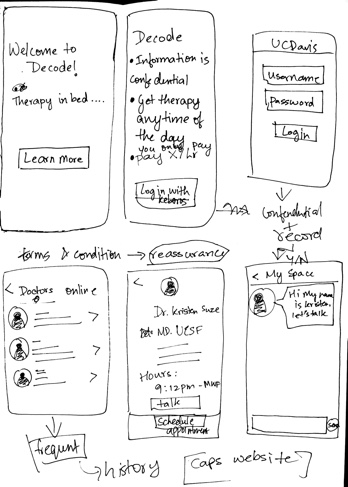 Welcome to
Decode!
Therapy in bed ....
Learn more
Decode
• Information is
confidential
• Get therapy
anytime of
the day
you only pay
• pay X/hr
Log in with
UCDavis
username
password
Login
confidential
+
record
Y/N
terms & condition → reassurance
< Doctors online
Dr. Kristen Suze
MD. UCSF
Hours:
9:12pm - MWF
talk
Schedule
appointment
< My Space
Hi My name
is kristen.
let's talk
frequent
history
Caps website